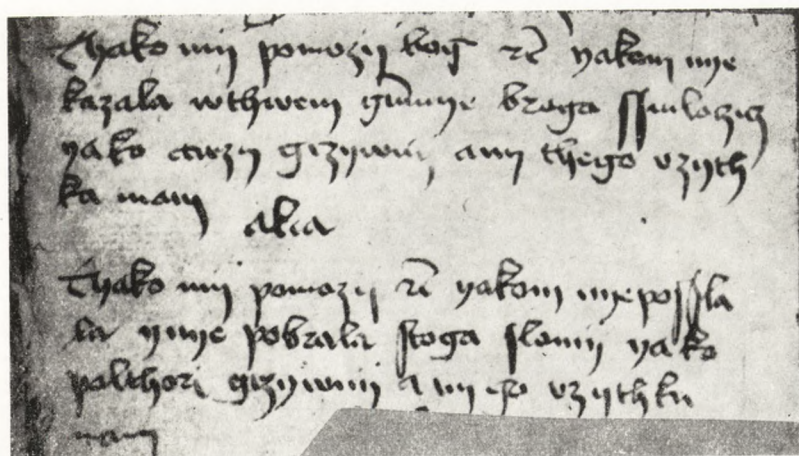 Thako mij pomozij bog etc yakom nye
kazala wthwem gumnye broga ssmloczicz
yako czwrzy grzywny any thego vzyth
ka mam
alia
Thako mij pomozij etc yakom nyepossla
la ynye pobrala stoga slomy yako
polthori grzywny any go vzythku
mam